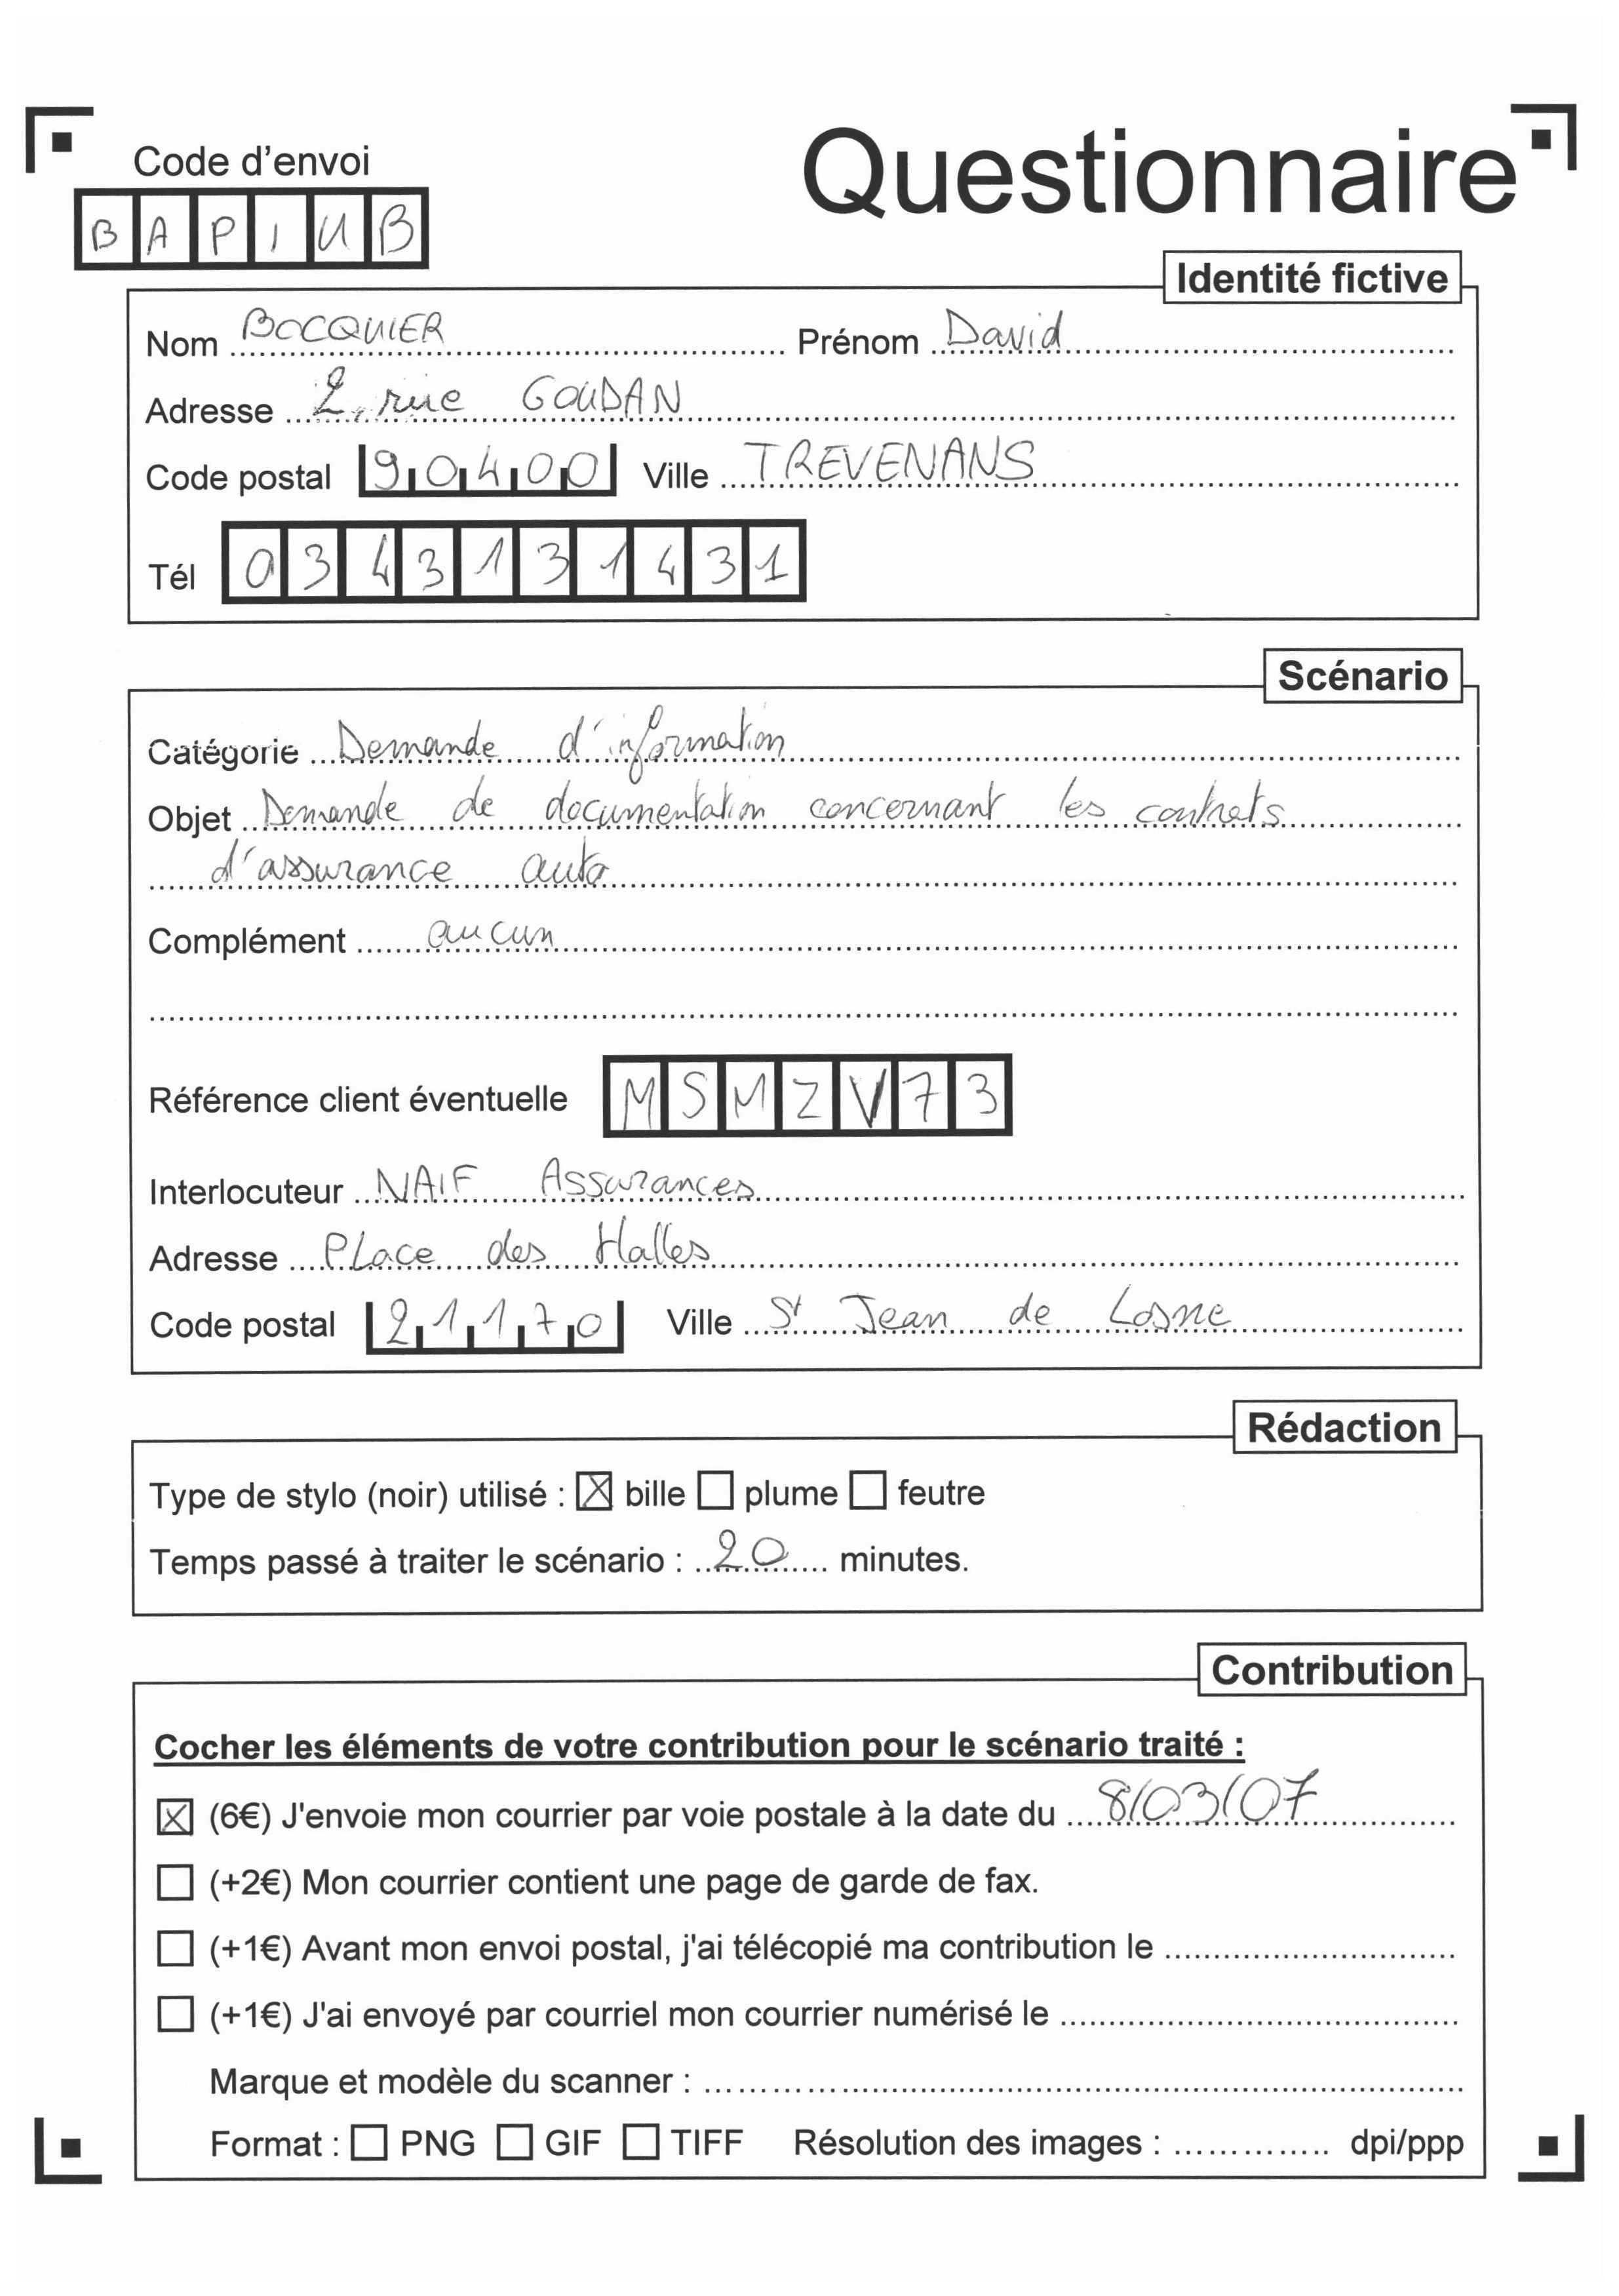 Code d'envoi
Questionnaire
BAPIUB
Identité fictive
Nom BOCQUIER Prénom David
Adresse 2, rue GOUDAN
Code postal 90400 Ville TREVENANS
Tél 0343131431
Scénario
Catégorie Demande d'information
Objet Demande de documentation concernant les contrats
d'assurance auto
Complément aucun
Référence client éventuelle MSMZV73
Interlocuteur NAIF Assurances
Adresse PLace des Halles
Code postal 21170 Ville St Jean de Losne
Rédaction
Type de stylo (noir) utilisé : ☒ bille ☐ plume ☐ feutre
Temps passé à traiter le scénario : 20 minutes.
Contribution
Cocher les éléments de votre contribution pour le scénario traité :
☒ (6€) J'envoie mon courrier par voie postale à la date du 8/03/07
☐ (+2€) Mon courrier contient une page de garde de fax.
☐ (+1€) Avant mon envoi postal, j'ai télécopié ma contribution le
☐ (+1€) J'ai envoyé par courriel mon courrier numérisé le
Marque et modèle du scanner :
Format : ☐ PNG ☐ GIF ☐ TIFF Résolution des images : dpi/ppp